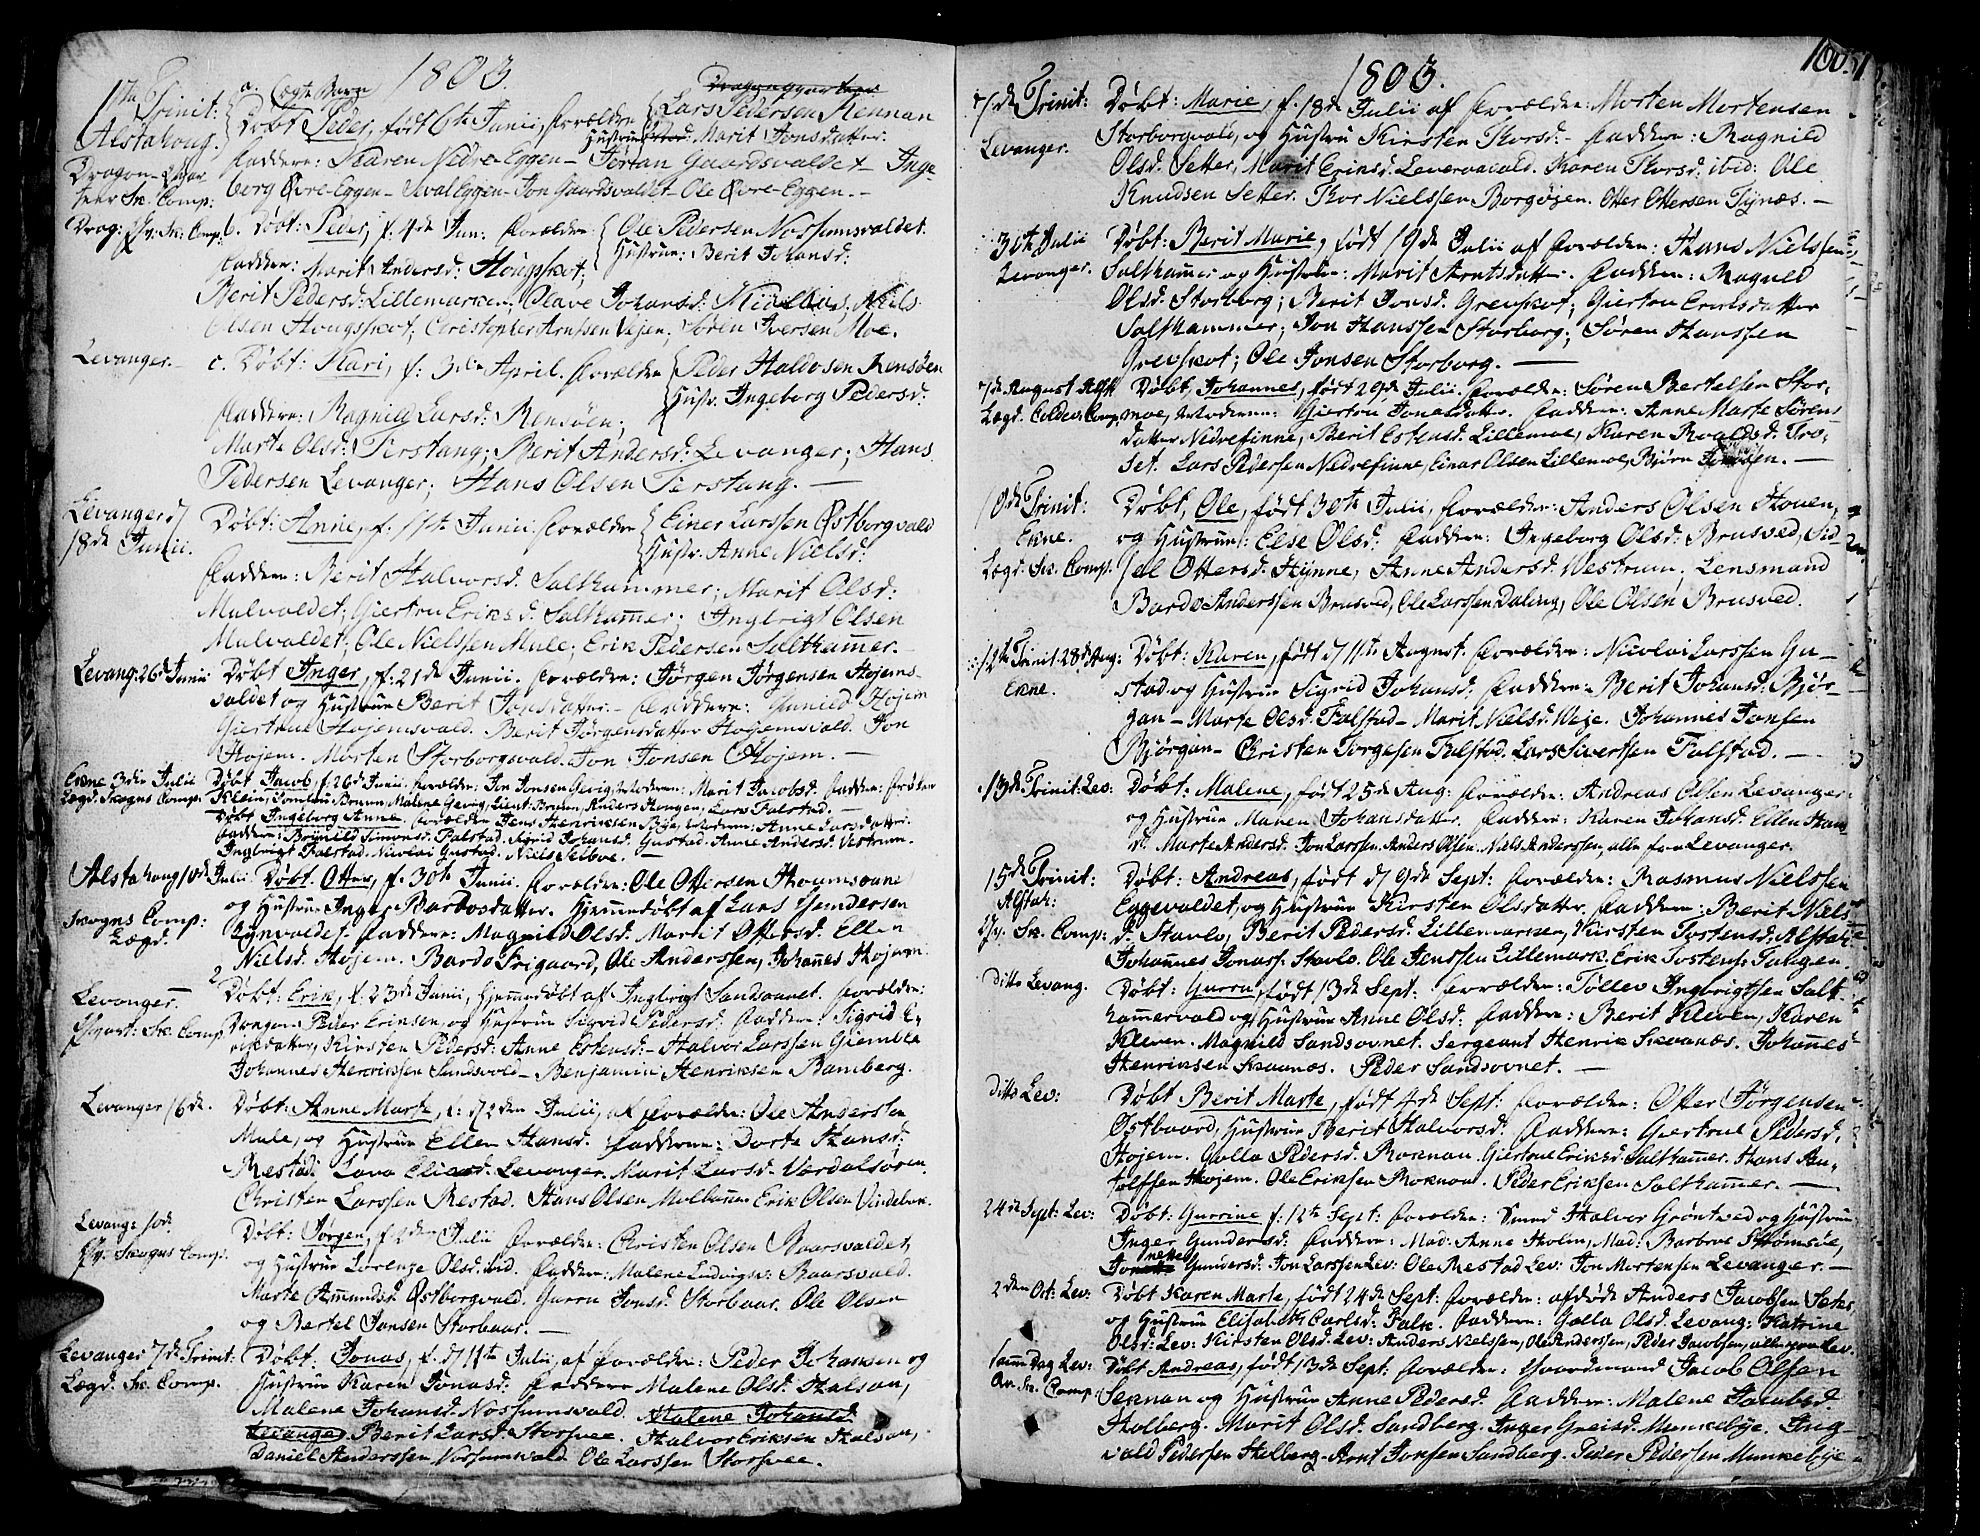 1803.
17de Trinit:
Alstahoug.
Dragon-Qvar
teer Sk. Comp:
a. Ægte Barn
Døbt Peder, født 6te Junii, Forældre Lars Pedersen Rennan
Hustrue Marit Jonsdatter.
Faddere: Karen Nedre-Eggen - Gaardsvallet - Inge-
borg Øvre-Eggen - Eggen - Jon Gaardsvaldet - Ole Øvre-Eggen. -
Drag: Qv. Sk. Comp. b. Døbt: Peder, f. 4de Jun: Forældre: Ole Pedersen Nossumsvaldet
Hustrue: Berit Johansd:
Faddere: Marit Andersd: Hougskot;
Berit Pedersd: Lillemarken; Olave Johansd: Niels
Olsen Hougskot; Christopher Arntsen Vejen; Søren Iversen Moe.
Levanger. c. Døbt: Kari, f. 3die April. Forældre Peder Haldosen Rensøen
Hustr. Ingeborg Pedersd:
Faddere: Ragnild Larsd: Rensøen;
Marte Olsd: Tirstang; Berit Andersd: Levanger; Hans
Pedersen Levanger; Hans Olsen Tirstang. -
Levanger d/
18de Junii.
Døbt: Anne, f. 11te Junii. Forældre Einer Larssen Østborgvald
Hustr. Anne Nielsd:
Faddere: Berit Halvorsd: Salthammer; Marit Olsd:
Mulvaldet; Giertru Eriksd: Salthamer; Inglrigt Olsen
Mulvaldet; Ole Nielssen Mule; Erik Pedersen Salthamer.
Levang: 26de Junii Døbt Inger, f. 21de Junii. Forældre: Jørgen Jørgensen Hojems-
valdet og Hustrue Berit Jonsdatter. - Faddere: Gunild Hojem
Giertrue Hojemsvald. Berit Jørgensdatter Hojemsvald. Jon
Hojem. Morten Storborgsvald. Jon Jonsen Hojem. -
Ekne 3die Julii Døbt Jacob, f. 26de Junii. Forældre: Jon Jonsen Gevig, Moderen: Marit Jacobsd: Faddere: Frøken
Lægd. Skogns Comp: Klein, Jomfrue Bruun, Malene Gevig, Lieut: Bruun, Anders Hougen, Lars Falstad. -
Døbt Ingeborg Anne. Forældre Jens Henriksen Bye, Moderen: Anne Larsdatter.
Faddere: Brynild Simonsd: Falstad. Sigrid Johansd: Gustad. Anne Andersd: Vestrum.
Inglrigt Falstad. Nicolai Gustad. Niels Selboe. -
Alstahoug 10de Julii. Døbt. Otter, f. 30te Junii. Forældre: Ole Ottersen
og Hustrue Inger Bardosdatter. Hjemmedøbt af Lars
Skogns Comp:
Lægd.
Faddere: Magnild Olsd: Marit Ottersd: Ellen
Nielsd: Hojem. Bardo Trigaard, Ole Anderssen, Johannes Hojem.
Levanger. 2 Døbt: Erik, f. 23de Junii, hjemmedøbt af Inglrigt Sandsovnet. Forældre:
Qvart: Sk. Comp Dragon Peder Eriksen, og Hustrue Sigrid Pedersd: Faddere: Sigrid E-
riksdatter, Kirsten Pedersd: Anne Estensd: - Halvor Larssen Giemble
Johannes Henriksen Sandsvold - Benjamin Henriksen Bamberg.
Levanger 16de. Døbt: Anne Marte, f: d/2den Julii, af Forældre: Ole Andersten
Mule, og Hustrue Ellen Hansd. Faddere: Dorte Hansd:
Restad: Lava Eliæsd. Levanger. Marit Larsd. Værdalsøren
Christen Larssen Restad. Hans Olsen Erik Olsen
Levang: 10de Døbt: Jørgen, f. 2den Julii Forældre: Christen Olsen Baarsvaldet,
Qv. Skogns Comp. og Hustrue Lorense Olsd. ibid. Faddere: Malene Ludvigsd: Baarsvald.
Marte Amundsd: Østborgvald. Gurru Jonsd: Storbaar. Ole Olsen
og Bertel Jansen Storbaar. -
Levanger 7de Trinit: Døbt: Jonas, f. d/11te Julii, af Forældre: Peder Johansen og
Lægd. Sk. Comp. Hustrue Karen Jonasd: Faddere Malene Olsd: Halsan,
Malene Johansd. Nossumsvald. Malene Johansd
Levanger Berit Larsd: Storsvee. Halvor Eriksen Halsan,
Daniel Anderssen Nossumvald. Ole Larssen Storsvee.
1803.
100.
7de Trinit:
Levanger.
Døbt: Marie, f. 18de Julii af Forældre: Morten Mortensen
Storborgvald, og Hustrue Kirsten Thorsd: - Faddere: Magnild
Olsd. Setter, Marit Eriksd. Karen Thorsd: ibid: Ole
Knudsen Setter. Thor Nielssen Borgøyen. Otter Ottersen Tynæs. -
30te Julii
Levanger.
Døbt: Berit Marie, født 19de Julii af Forældre: Hans Nielssen
Salthamer og Hustrue: Marit Arntsdatter. Faddere: Magnild
Olsd. Storborg; Berit Jonsd. Grevskot; Giertru Eriksdatter
Salthammer; Jon Hanssen Storborg; Søren Hanssen
Grevskot; Ole Jonsen Storborg. -
7de August Alst: Døbt, Johannes, født 29de Julii. Forældre: Søren Bertelsen Stor-
Lægd. Comp. moe, Moderen: Giertru Jonasdatter. Faddere: Anne Marte Sørens
datter Nedrefinne, Berit Estensd. Lillemoe, Karen Roaldsd. Tro-
set. Lars Pedersen Nedrefinne, Einar Olsen Lillemoe, Bjørn -
10de Trinit:
Ekne.
Lægd. Sk. Comp.
Døbt, Ole, født 30te Julii, Forældre: Anders Olsen Houen,
og Hustrue: Else Olsd: Faddere: Ingeborg Olsd: Brusved, Sid-
sel Ottersd: Hynne, Anne Andersd. Vestrum, Lensmand
Bardo Anderssen Brusved, Ole Larssen Daling, Ole Olsen Brusved.
12te Trinit: 28de Aug:
Ekne.
Døbt: Karen, født d/11te August. Forældre: Nicolai Larssen Gu-
stad og Hustrue Sigrid Johansd: Faddere: Berit Johansd: Bjør-
gan - Marte Olsd: Falstad - Marit Nielsd: Veje. Johannis Jonsen
Bjørgan - Christen Torgesen Falstad. Lars Siversen Falstad. -
13de Trinit: Lev: Døbt: Malene, født 25de Aug: Forældre: Andreas Olsen Levanger
og Hustrue Maren Johansdatter. Faddere: Karen Johansd: Ellen Hans
d: Marte Andersd: Jon Larssen. Anders Olsen. Niels Anderssen, alle fra Levanger.
15de Trinit:
Alstah:
Qv. Sk. Comp:
Døbt: Andreas, født d/9de Sept: Forældre: Rasmus Nielssen
Eggevaldet, og Hustrue Kirsten Olsdatter. Faddere: Berit Niels-
d: Stavlo, Berit Pedersd: Lillemarken, Kirsten Torstensd: Alstah:
Johannes Jonass: Stavlo. Ole Jenssen Lillemark. Erik Tostens: Tuligen
Ditto Levang. Døbt: Gurru, født 13de Sept: Forældre: Tollev Inglrigtsen Salt-
hammervald og Hustrue Anne Olsd: Faddere: Berit Kleven, Karen
Kleven. Magnild Sandsovnet. Sergeant Henrik Skaanæs. Johannes
Henriksen Skaanæs. Peder Sandsovnet. -
Ditto Lev: Døbt Berit Marte, født 4de Sept: Forældre: Otter Jørgensen
Østbaard, Hustrue Berit Halvorsd: Faddere: Giertrue Pedersd,
Hojem. Golla Pedersd: Roknan. Giertrue Eriksd: Salthamer. Hans An-
Hojem. Ole Eriksen Roknan. Peder Eriksen Salthamer. -
24de Sept: Lev: Døbt: Gurrine f: 12te Sept: Forældre: Smed Halvor Grøntved og Hustrue
Inger Gundersd: Faddere: Mad: Anne Holm, Mad: Barbroe Strømsøe,
nette Gundersd: Jon Larssen Lev: Ole Restad Lev: Jon Mortensen Levanger. -
2den Oct: Lev: Døbt Karen Marte, født 24de Sept: Forældre: afdøde Anders Jacobsen
og Hustrue Elisabeth Carlsd: Falk. Faddere: Golla Olsd: Levang: Katrine
Olsd: Lev: Kirsten Olsd: Lev: Anders Nielssen, Ole Anderssen, Peder Jacobsen, alle fra Lev.
samme Dag Lev: Døbt Andreas, født 13de Sept: Forældre: Gaardmand Jacob Olsen
Qv. Sk. Comp. Sennan og Hustrue Anne Pedersd: Faddere: Malene Jacobsd:
Holberg. Marit Olsd: Sandberg. Inger Greisd: Munkebye. Ing-
vald Pedersen Holberg. Arnt Jonsen Sandberg. Peder Pedersen Munkebye